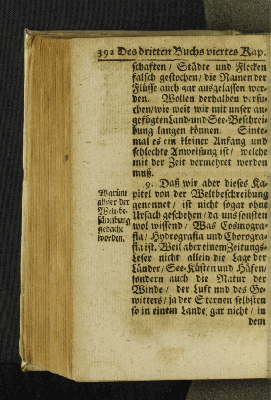 392 Des dritten Buchs viertes Kap.
schafften / Städte und Flecken
falsch gestochen / die Namen der
Flüsse auch gar ausgelassen wer-
den. Wollen derhalben versu-
chen / wie weit wir mit unser an-
gefügten Land und See-Beschrei-
bung langen können. Sinte-
mal es ein kleiner Anfang und
schlechte Anweisung ist / welche
mit der Zeit vermehret werden
muß.
9. Daß wir aber dieses Ka-
pitel von der Weltbeschreibung
genennet / ist nicht sogar ohne
Ursach geschehen / da uns sonsten
wol wissend / Was Cosmogra-
fia / Hydrografia und Chorogra-
fia ist. Weil aber einem Zeitungs-
Leser nicht allein die Lage der
Länder / See-Küsten und Häfen /
sondern auch die Natur der
Winde / der Luft und des Ge-
witters / ja der Sternen selbsten
so in einem Lande / gar nicht / in
dem
Warum
alhier der
Welt-be-
schreibung
gedacht
worden.